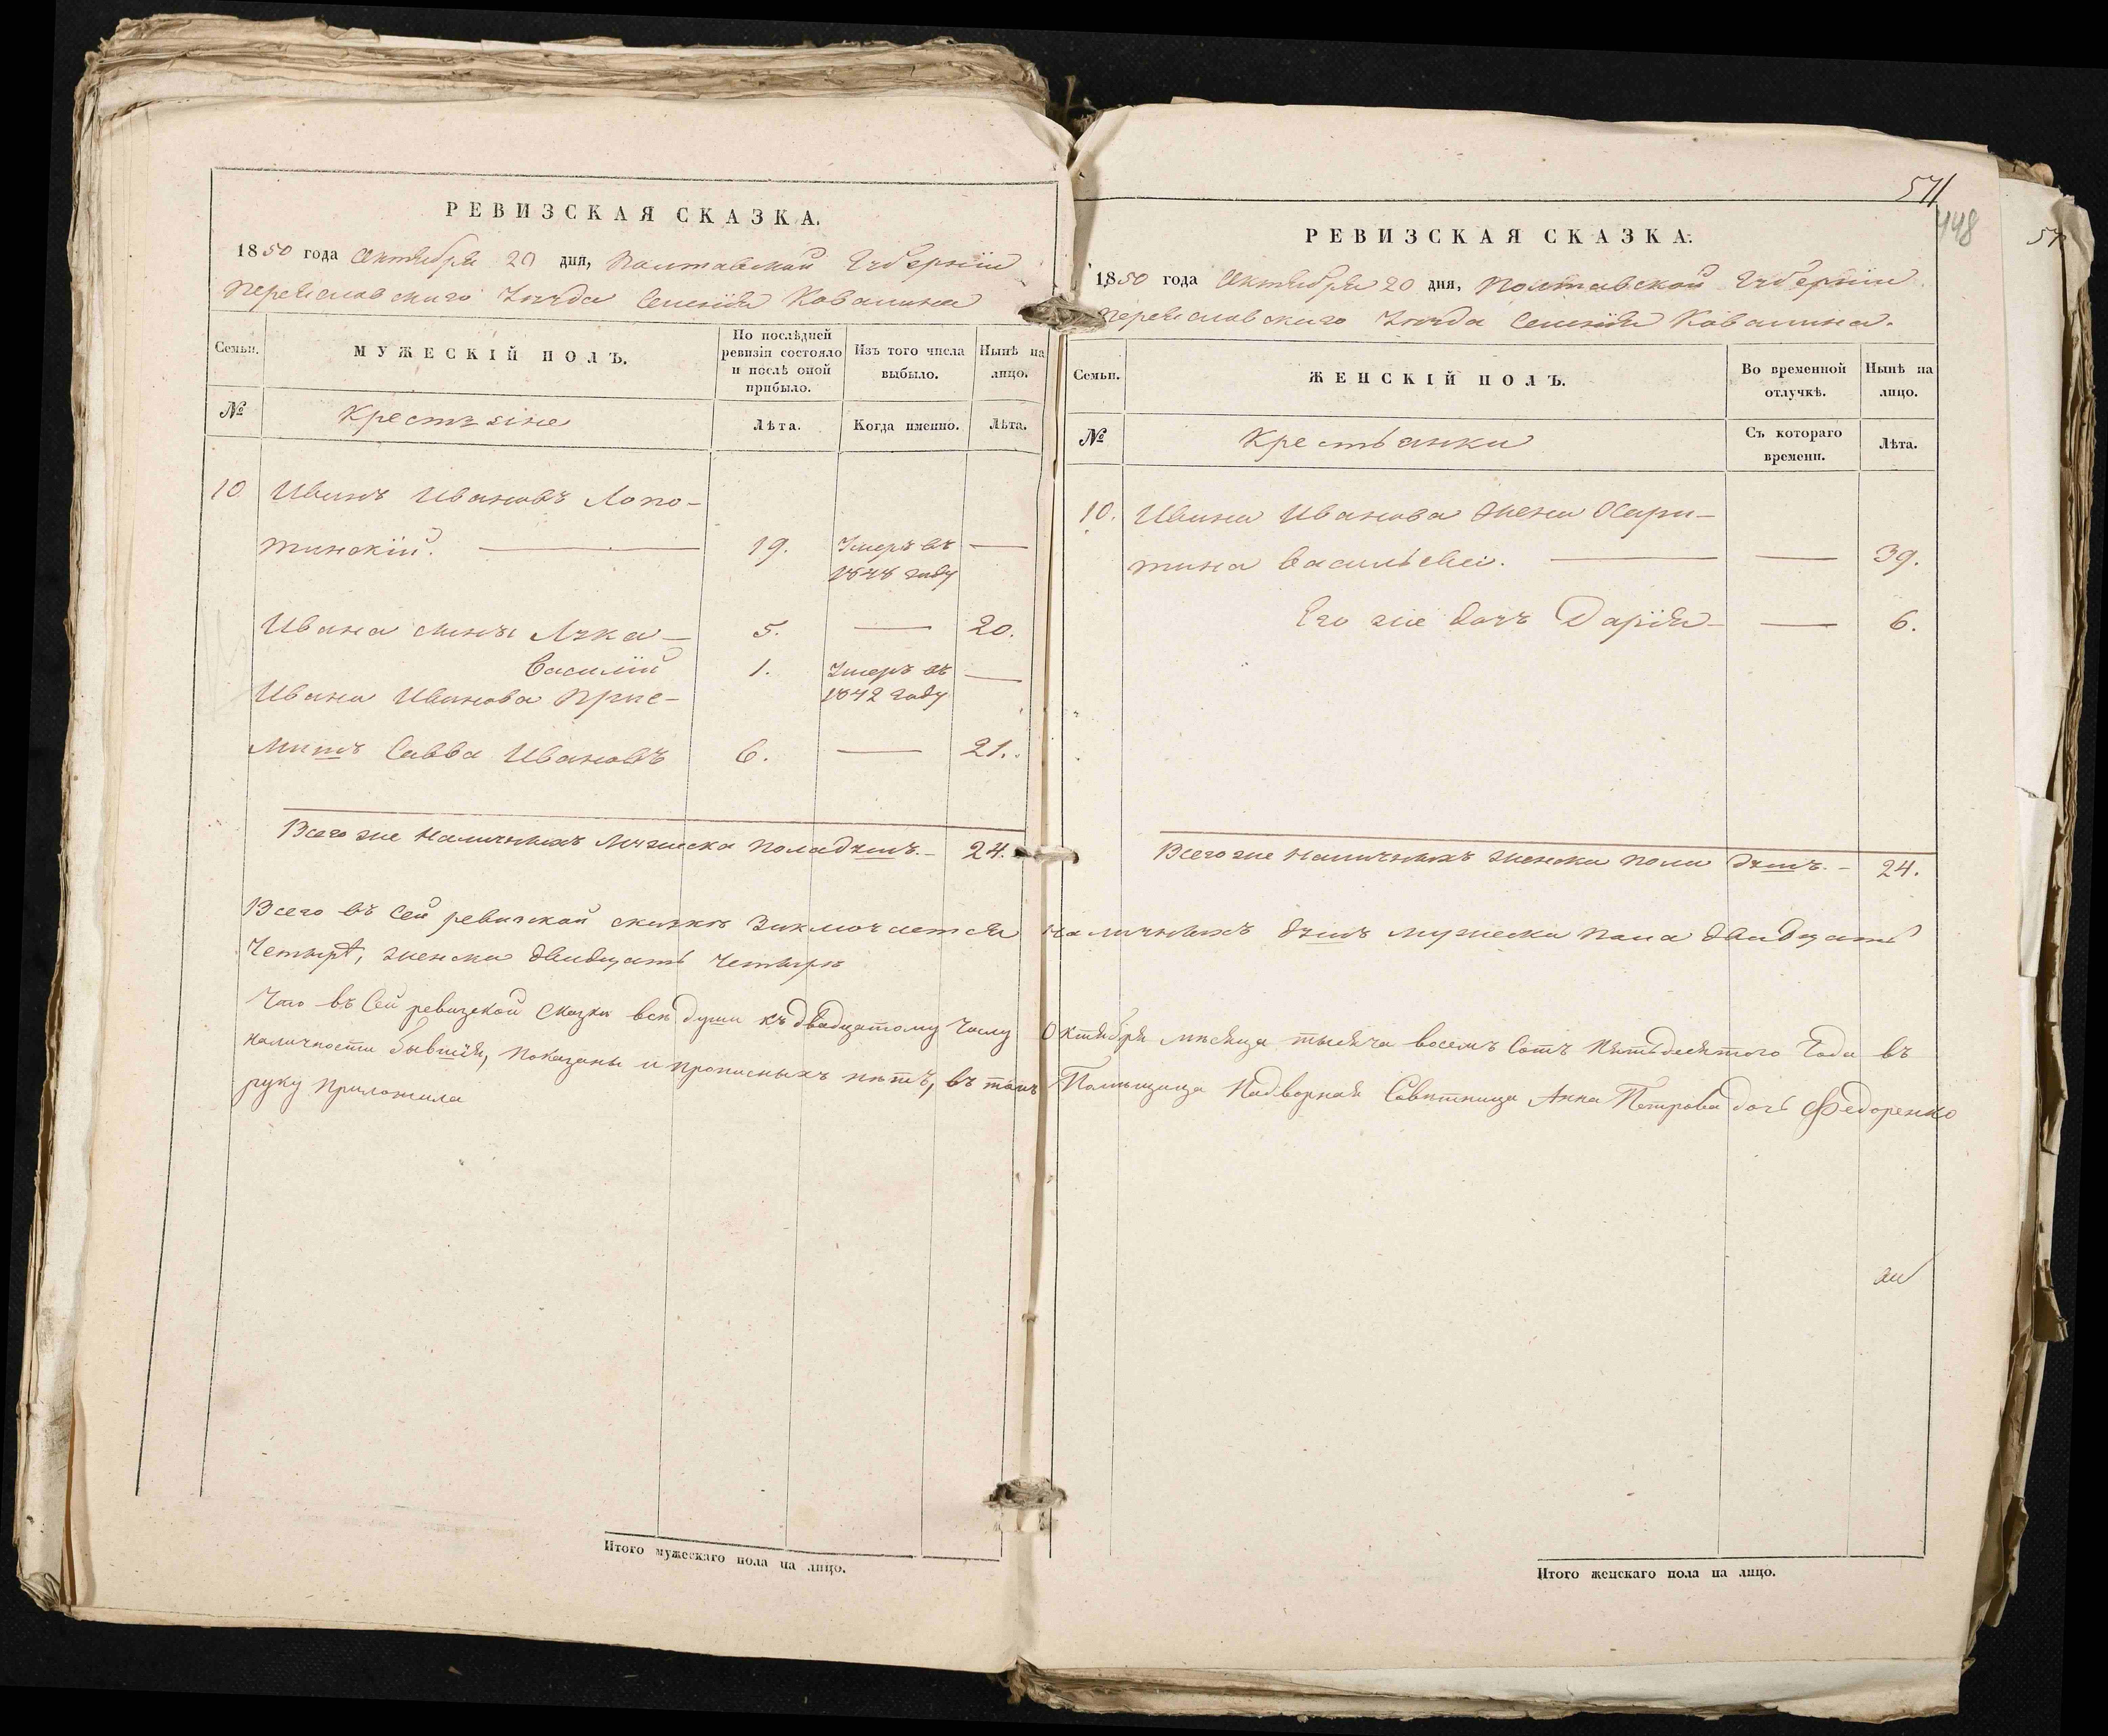 РЕВИЗСКАЯ СКАЗКА.
1850 года Октября 20 дня, Полтавской Губерніи
Переяславского Уѣзда Селенія Ковалина
Семьи.
МУЖЕСКІЙ ПОЛЪ.
По послѣдней ревизіи состояло и послѣ оной прибыло.
Изъ того числа выбыло.
Нынѣ на лицо.
№
Крестьяне
Лѣта.
Когда именно.
Лѣта.
10 Иванъ Ивановъ Лопо-
тинскій. — 19. Умеръ въ —
1848 году
Ивана сынъ Лука — 5. — 20.
Василій 1. Умеръ въ —
1842 году
Ивана Иванова Прие-
мишъ Савва Ивановъ 6. — 21.
Всего же наличныхъ мужеска пола душъ. — 24.
571
448
57
РЕВИЗСКАЯ СКАЗКА.
1850 года Октября 20 дня, Полтавской Губерніи
Переяславскаго Уѣзда Селенія Ковалина.
Семьи.
ЖЕНСКІЙ ПОЛЪ.
Во временной отлучкѣ.
Нынѣ на лицо.
№
Крестьянки
Съ котораго времени.
Лѣта.
10. Ивана Иванова жена Хари-
тина Васильева. — — 39.
Его же дочь Дарія — — 6.
Всего же наличныхъ женска пола душъ. — 24.
Всего въ сей ревизской сказкѣ заключается наличныхъ душъ мужеска пола двадцать
четыре, женска двадцать четыре
Что въ сей ревизской сказки всѣ души къ двадцатому числу Октября мѣсяца тысяча восемъ сотъ пятьдесятого года въ
наличности бывшія, показаны и прописныхъ нѣтъ, въ томъ Помѣщица Надворная Совѣтница Анна Петрова дочь Федоренко
руку приложила
Итого мужескаго пола на лицо.
Итого женскаго пола на лицо.